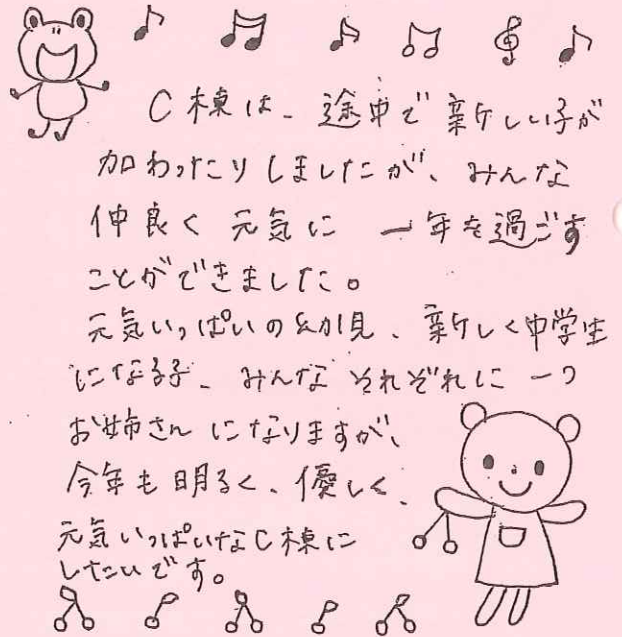 C棟は、途中で新しい子が
加わったりしましたが、みんな
仲良く元気に一年を過ごす
ことができました。
元気いっぱいの幼児、新しく中学生
になる子、みんなそれぞれに一つ
お姉さんになりますが、
今年も明るく、優しく、
元気いっぱいなC棟に
したいです。